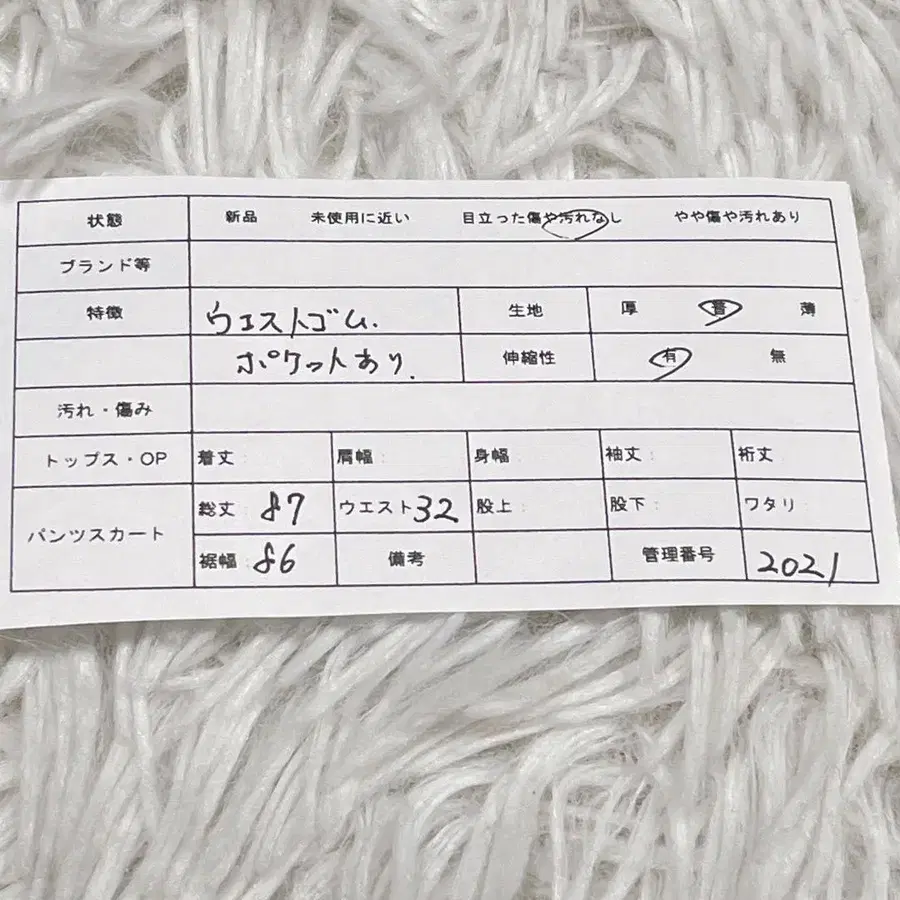 状態 新品 未使用に近い 目立った傷や汚れなし やや傷や汚れあり
ブランド等
特徴 ウエストゴム. 生地 厚 普 薄
ポケットあり. 伸縮性 有 無
汚れ・傷み
トップス・OP 着丈: 肩幅: 身幅: 袖丈: 裄丈:
パンツスカート 総丈: 87 ウエスト: 32 股上: 股下: ワタリ:
裾幅: 86 備考 管理番号 2021